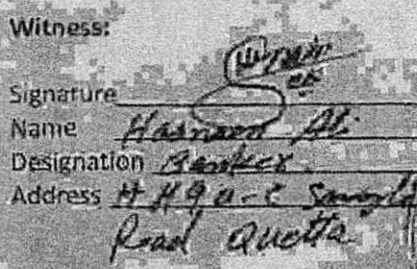 Witness:
Signature
Name Hasnain Ali
Designation Banker
Address
Road Quetta